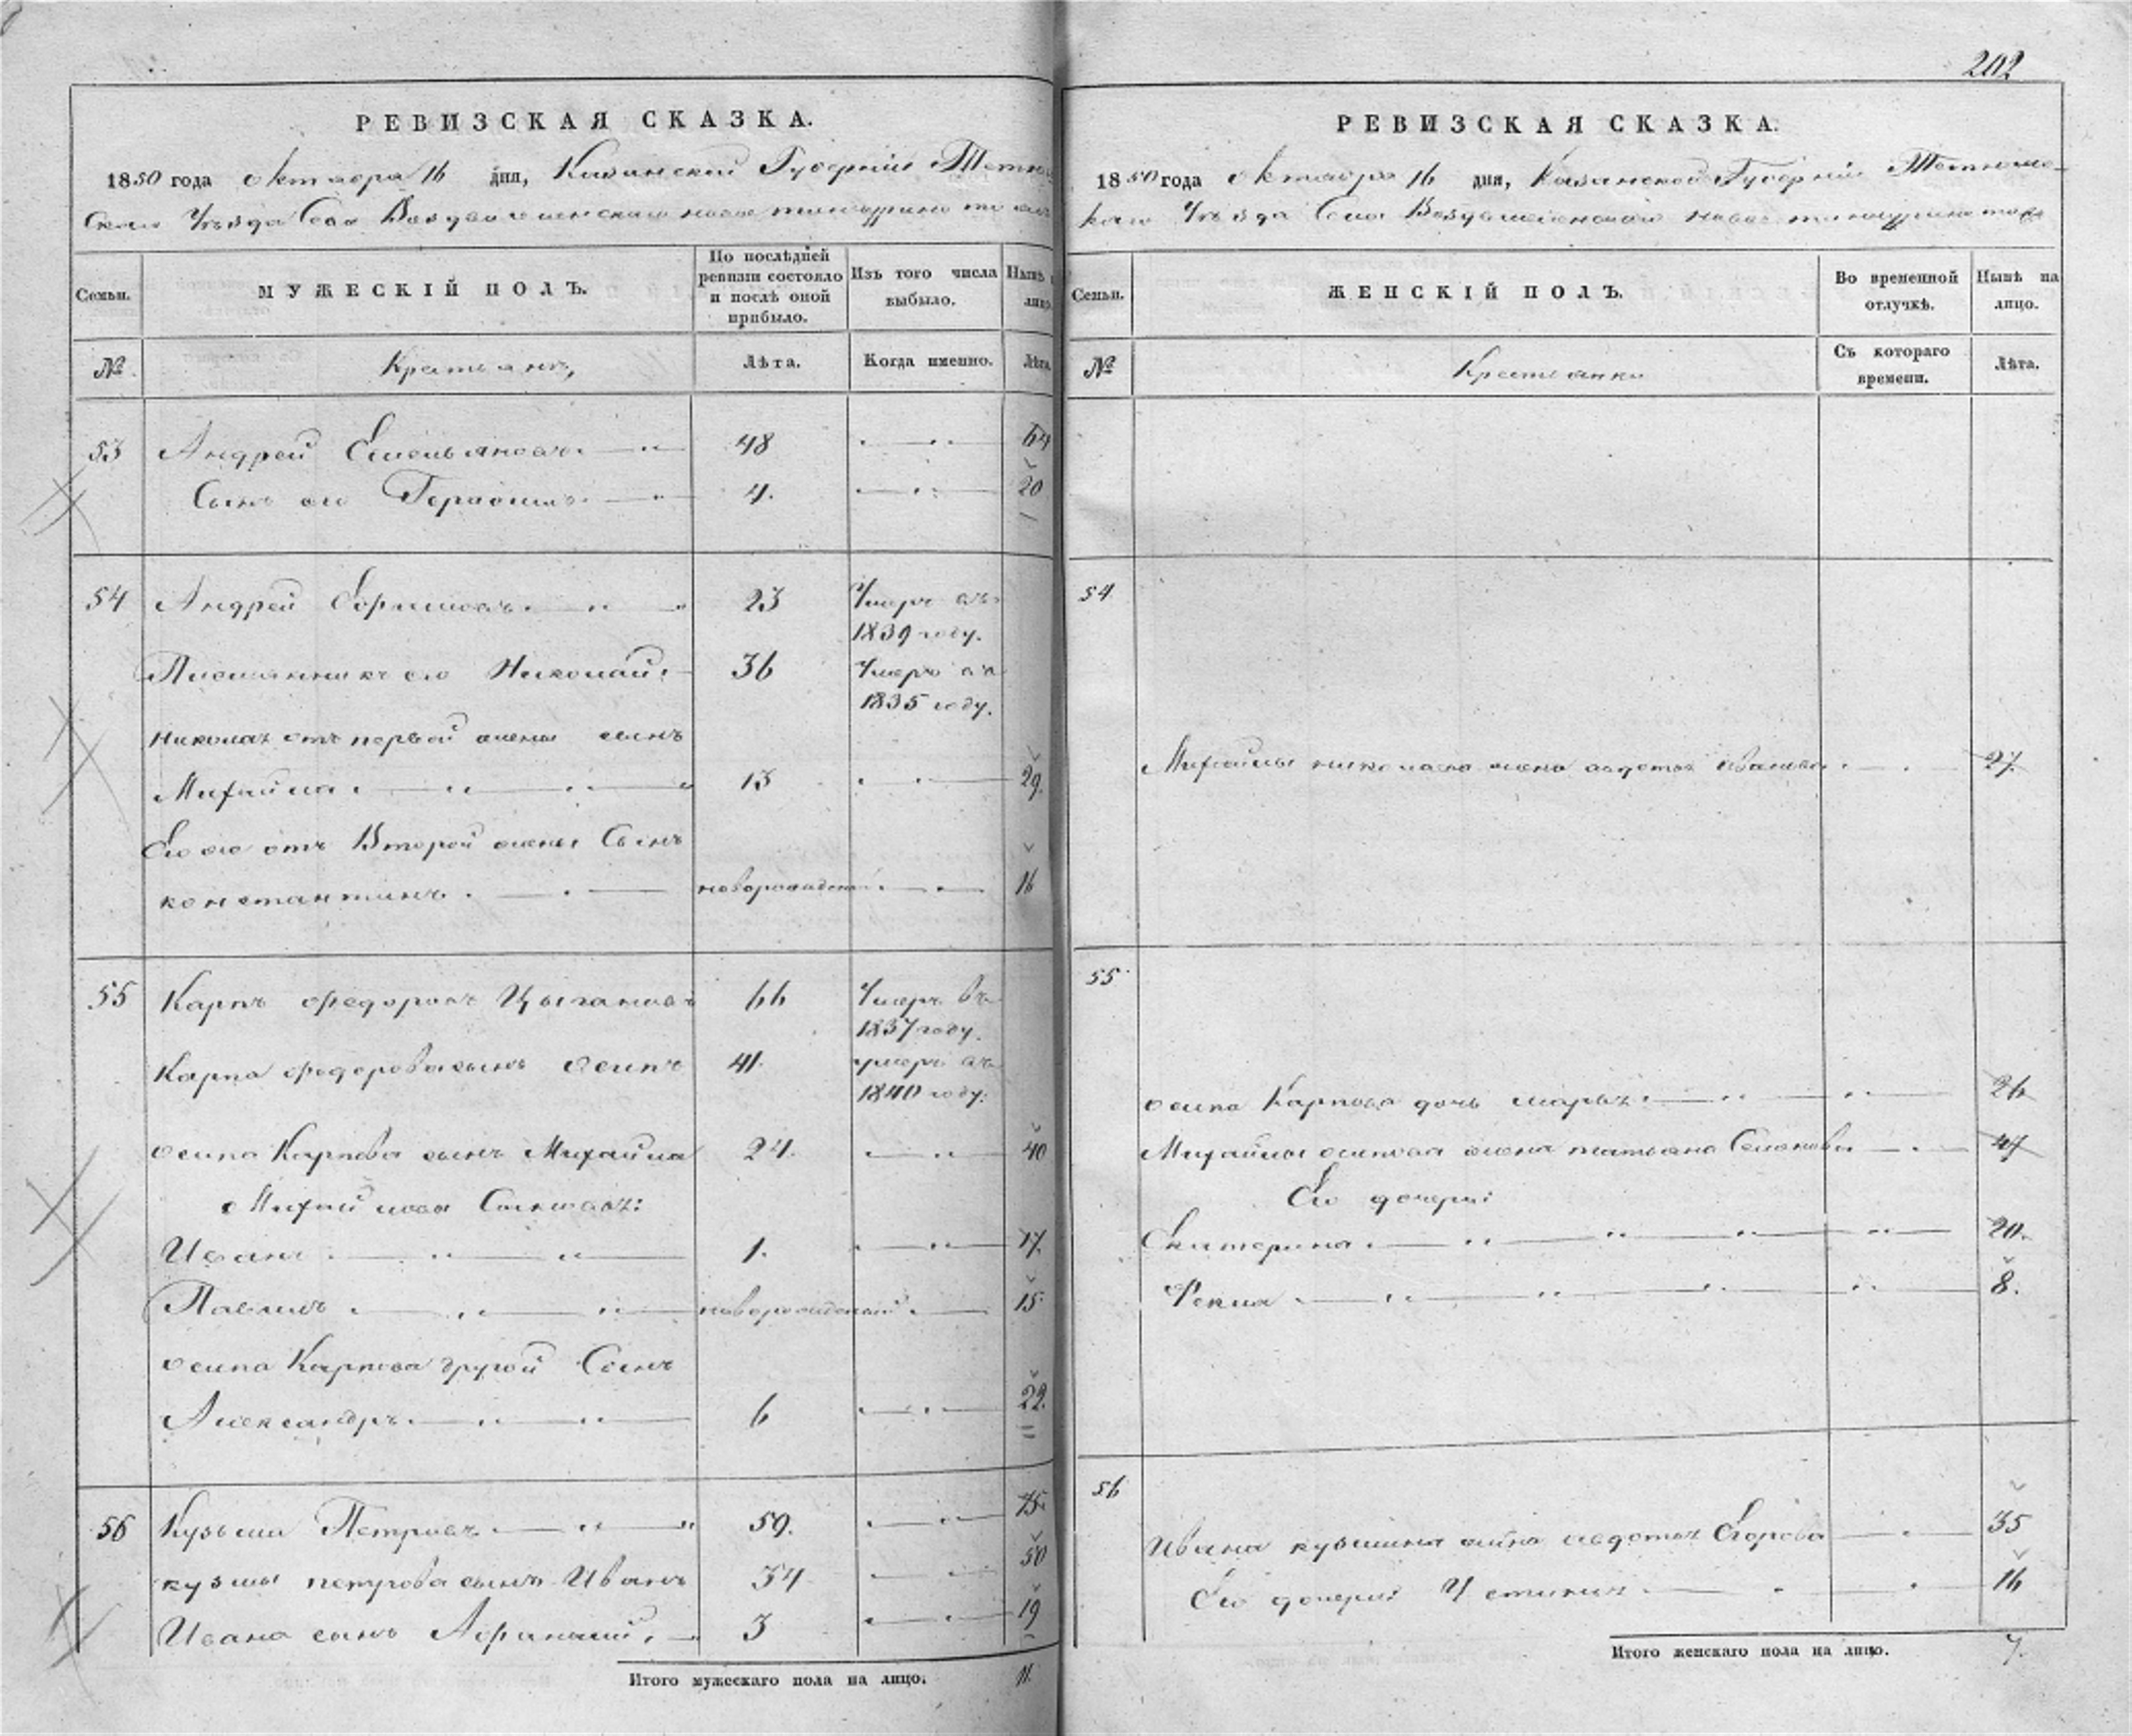 202
РЕВИЗСКАЯ СКАЗКА.
1850 года октября 16 дня, Казанской Губернiи Тетю
скаго Уѣзда Села Воздвиженскаго новое тинчурино тожъ
Семьи. МУЖЕСКIЙ ПОЛЪ. По послѣдней ревизiи состояло и послѣ оной прибыло. Изъ того числа выбыло. Нынѣ на лицо.
№ Крестьянъ, Лѣта. Когда именно. Лѣта.
53 Андрей Емельяновъ 48 64
Сынъ его Герасимъ 4. 20
54 Андрей 23 Умеръ въ
1839 году.
Племянникъ его Николай 36 Умеръ въ
1835 году.
Николая отъ первой жены сынъ
Михайла 13 29.
Его же отъ Второй жены Сынъ
константинъ новорожденный 16
55 Карпъ федоровъ Цыгановъ 66 Умеръ въ
1837 году.
Карпа федорова сынъ Осипъ 41. умеръ въ
1840 году.
осипа Карпова сынъ Михайла 24. 40
Михайловы Сыновья:
Иванъ 1. 17.
Павелъ новорожденный 15
осипа Карпова другой Сынъ
Александръ 6 22.
56 Кузьма Петровъ 59. 75.
кузмы петрова сынъ Иванъ 34 50
Ивана сынъ Афанасий 3 19
Итого мужескаго пола на лицо. 11.
РЕВИЗСКАЯ СКАЗКА.
1850 года октября 16 дня, Казанской Губернiи Тетюшс
каго Уѣзда Села Воздвиженскаго новое тинчурино тожъ
Семьи. ЖЕНСКIЙ ПОЛЪ. Во временной отлучкѣ. Нынѣ на лицо.
№ Крестьянки Съ котораго времени. Лѣта.
54
Михайлы николаева жена авдотья Иванова 27.
55
осипа Карпова дочь марья 26
Михайлы осипова жена татьяна Семенова 47
Его дочери:
Екатерина 20.
Фекла 8.
56
Ивана кузмина жена авдотья Егорова 35
Его дочери: Устинья 16
Итого женскаго пола на лицо. 7.